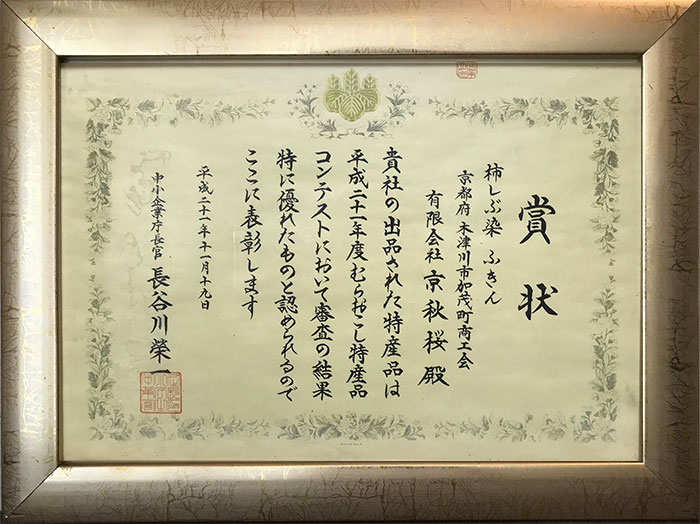 賞状
柿しぶ染 ふきん
京都府 木津川市加茂町商工会
有限会社 京秋桜殿
貴社の出品された特産品は
平成二十一年度むらおこし特産品
コンテストにおいて審査の結果
特に優れたものと認められるので
ここに表彰します
平成二十一年十一月十九日
中小企業庁長官 長谷川榮一